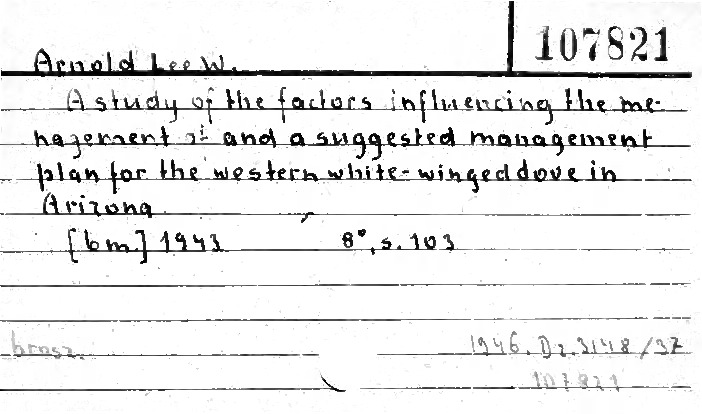 107821
Arnold Lee W.
A study of the factors influencing the me-
nagement of and a suggested management
plan for the western white-winged dove in
Arizona
[bm.] 1943 8°, s. 103
brosz. 1946. Dz. 3148/37
107821